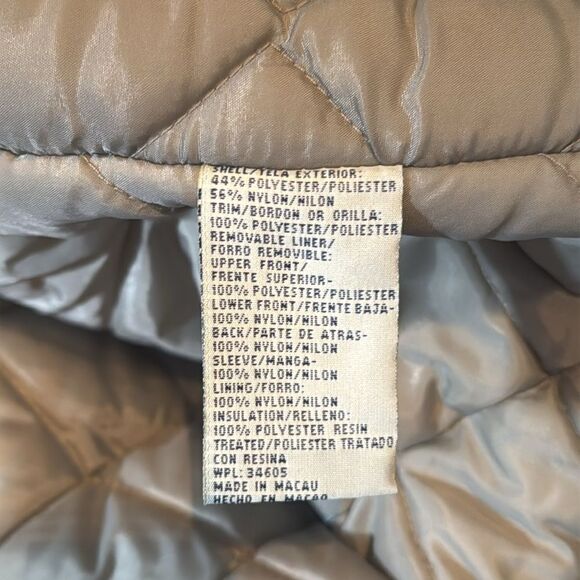 SHELL/TELA EXTERIOR:
44% POLYESTER/POLIESTER
56% NYLON/NILON
TRIM/BORDON OR ORILLA:
100% POLYESTER/POLIESTER
REMOVABLE LINER/
FORRO REMOVIBLE:
UPPER FRONT/
FRENTE SUPERIOR-
100% POLYESTER/POLIESTER
LOWER FRONT/FRENTE BAJA-
100% NYLON/NILON
BACK/PARTE DE ATRAS-
100% NYLON/NILON
SLEEVE/MANGA-
100% NYLON/NILON
LINING/FORRO:
100% NYLON/NILON
INSULATION/RELLENO:
100% POLYESTER RESIN
TREATED/POLIESTER TRATADO
CON RESINA
WPL: 34605
MADE IN MACAU
HECHO EN MACAO